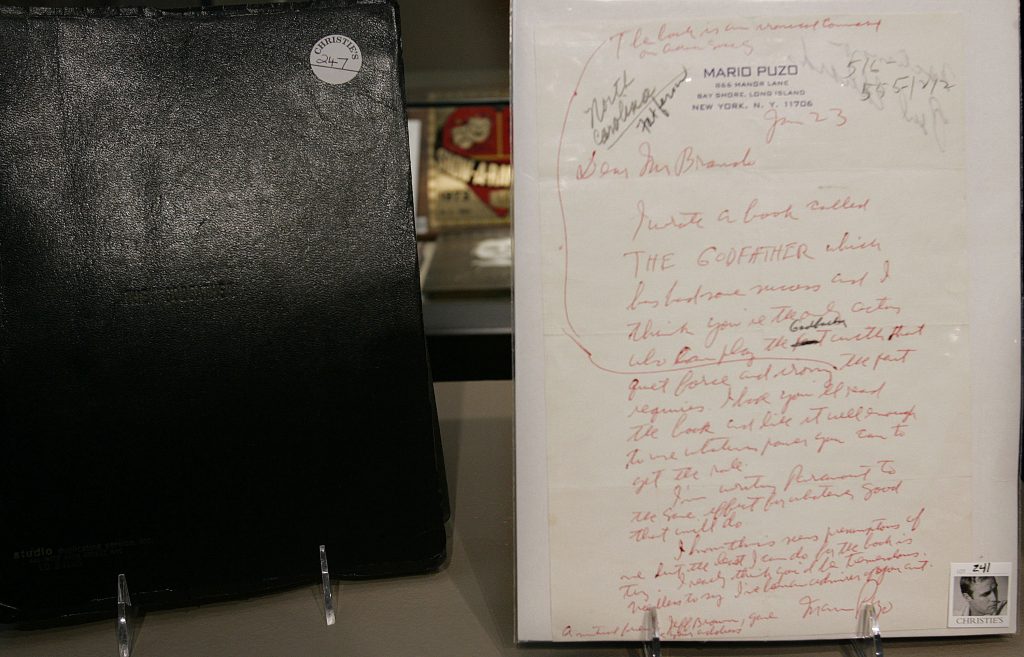 CHRISTIE'S
247
studio
The book is an ironical comment
on American society
North
Carolina
MARIO PUZO
866 MANOR LANE
BAY SHORE, LONG ISLAND
NEW YORK, N. Y. 11706
516
Jan 23
Dear Mr Brando
I wrote a book called
THE GODFATHER which
has had some success and I
think you're the only actor
Godfather
who can play the part with that
quiet force and irony the part
requires. I hope you'll read
the book and like it well enough
to use whatever power you can to
get the role.
I'm writing Paramount to
the same effect for whatever good
that will do.
I know this is presumptuous of
me but the least I can do for the book is
try. I really think you'd be tremendous.
Needless to say I've been an admirer of your art.
Mario Puzo
A mutual friend, Jeff Brown, gave
me your address
LOT 241
CHRISTIE'S